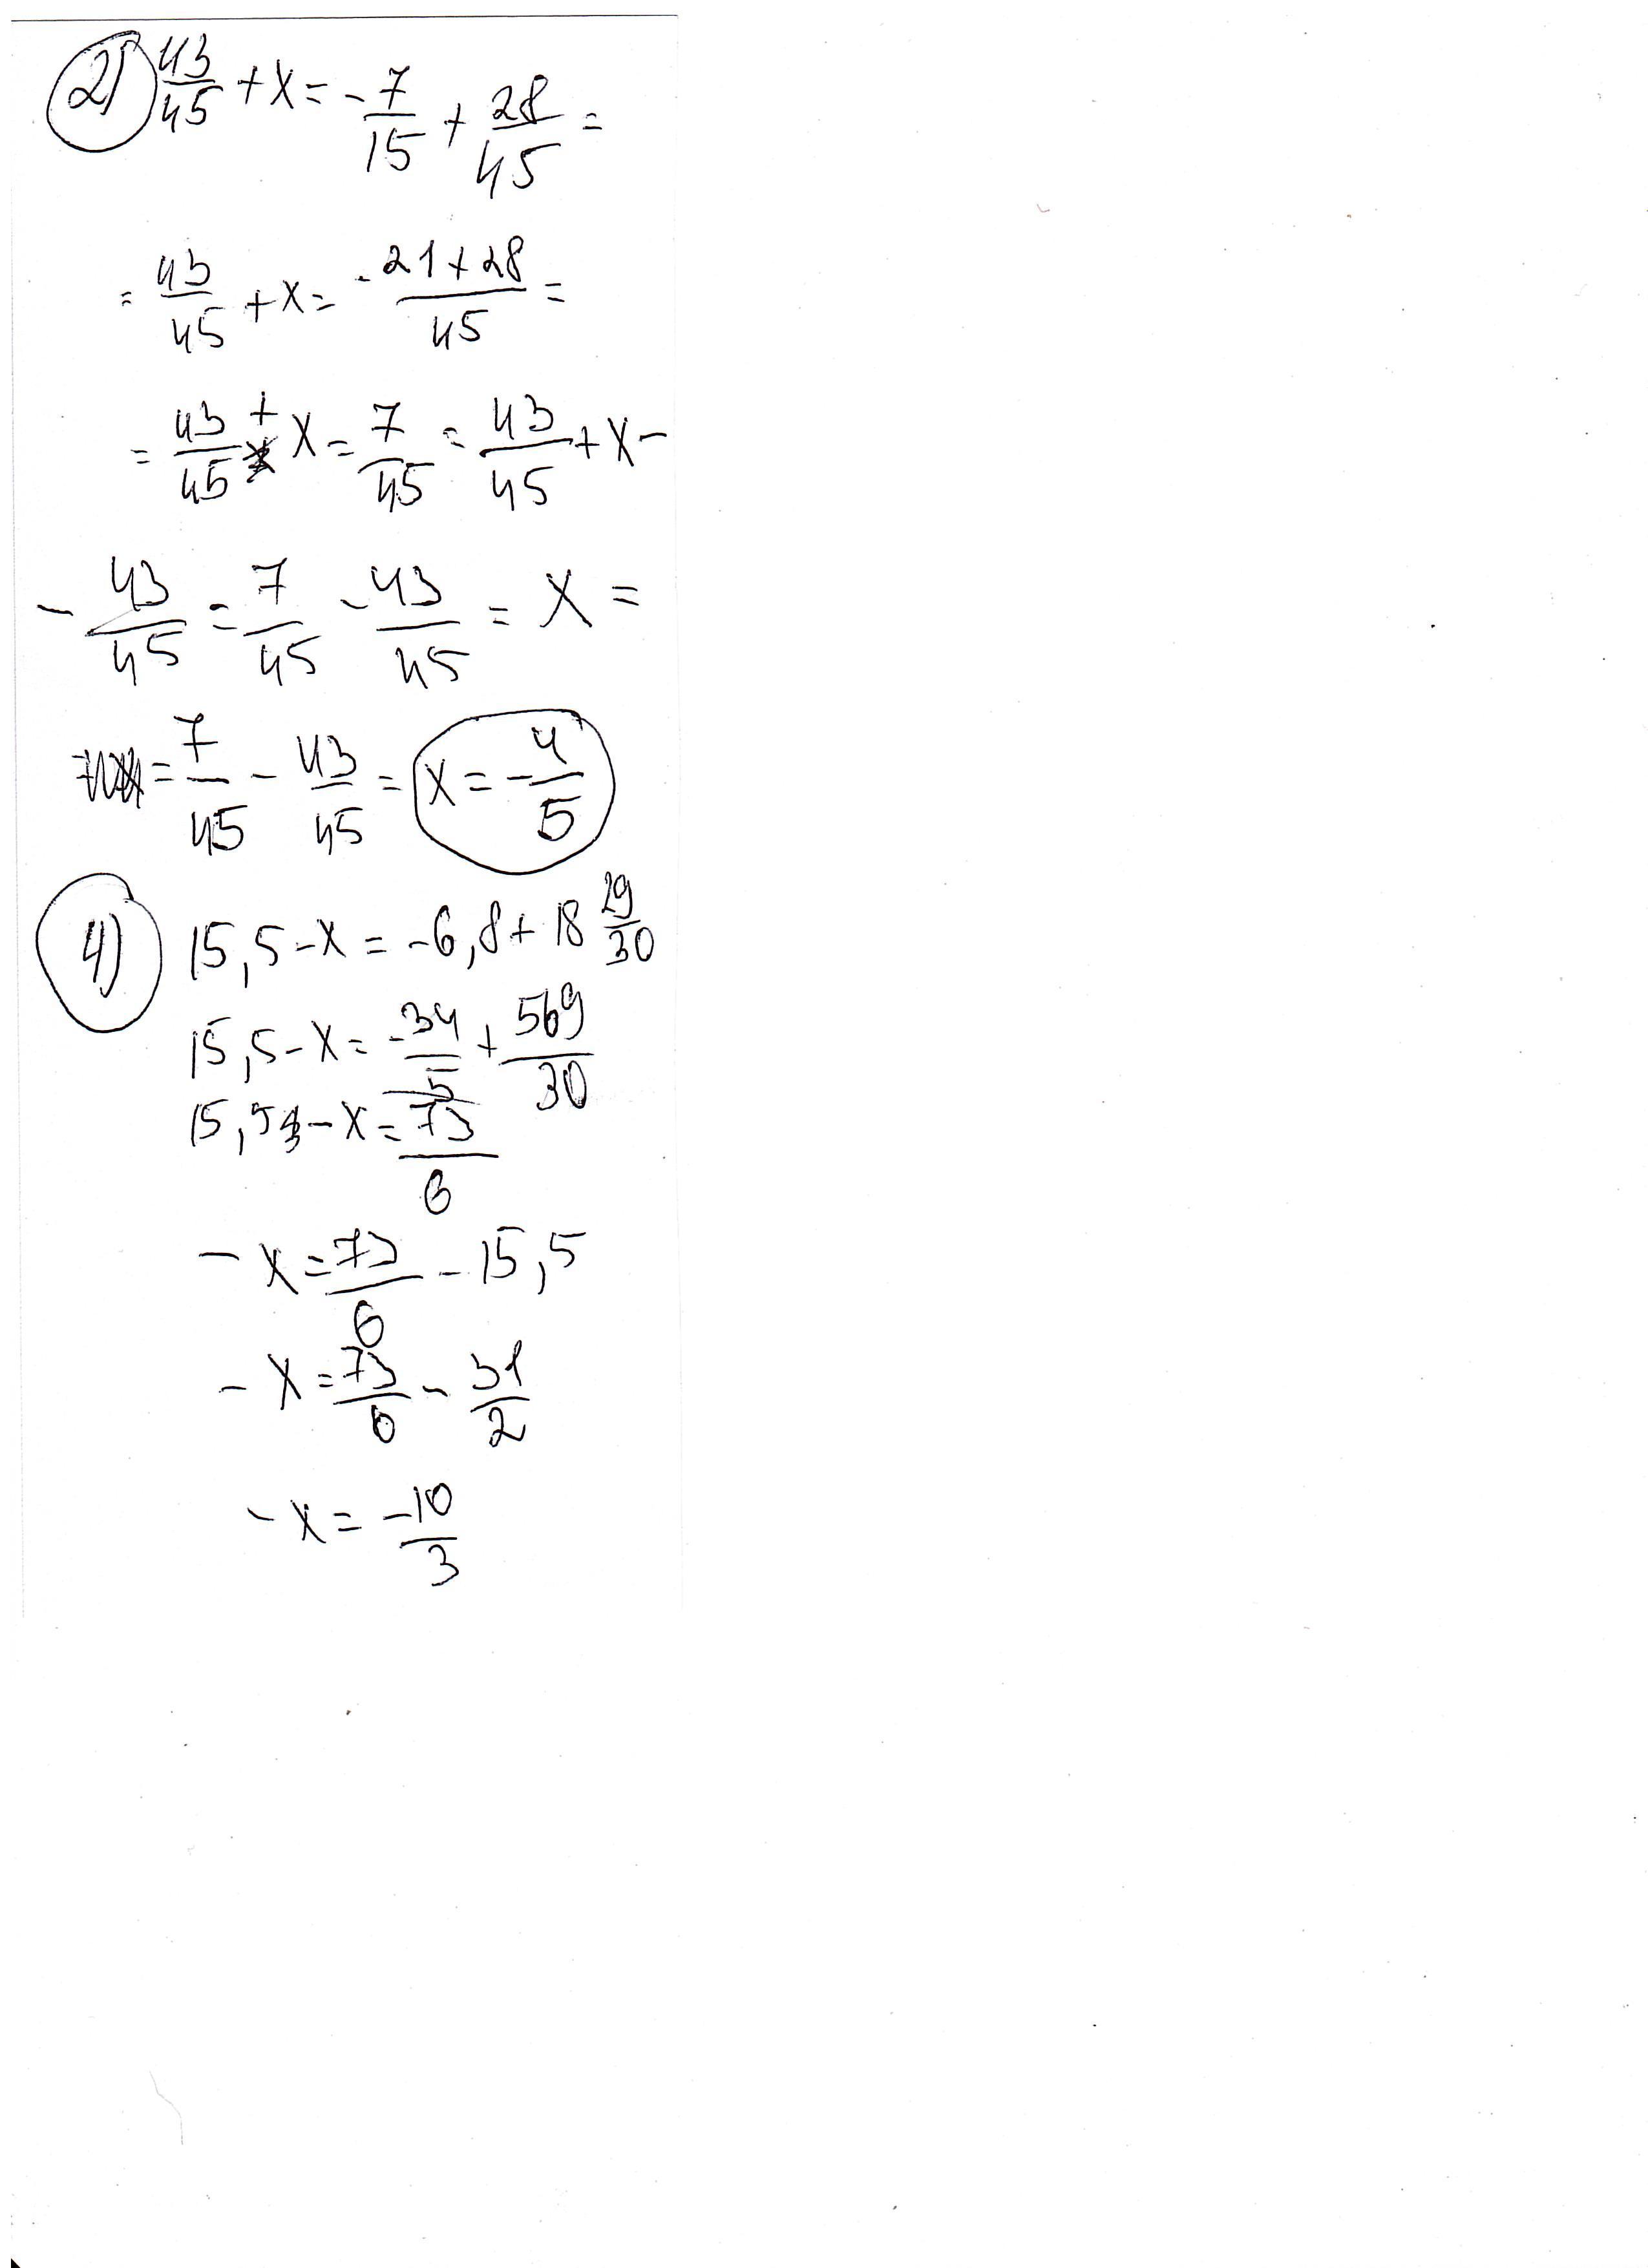 2) 43/45 + x = - 7/15 + 28/45 =
= 43/45 + x = - 21+28/45 =
= 43/45 + x = 7/45 = 43/45 + x -
- 43/45 = 7/45 - 43/45 = x =
= 7/45 - 43/45 = x = - 4/5
4) 15,5 - x = -6,8 + 18 29/30
15,5 - x = - 34/5 + 569/30
15,5 - x = 73/6
- x = 73/6 - 15,5
- x = 73/6 - 31/2
- x = -10/3